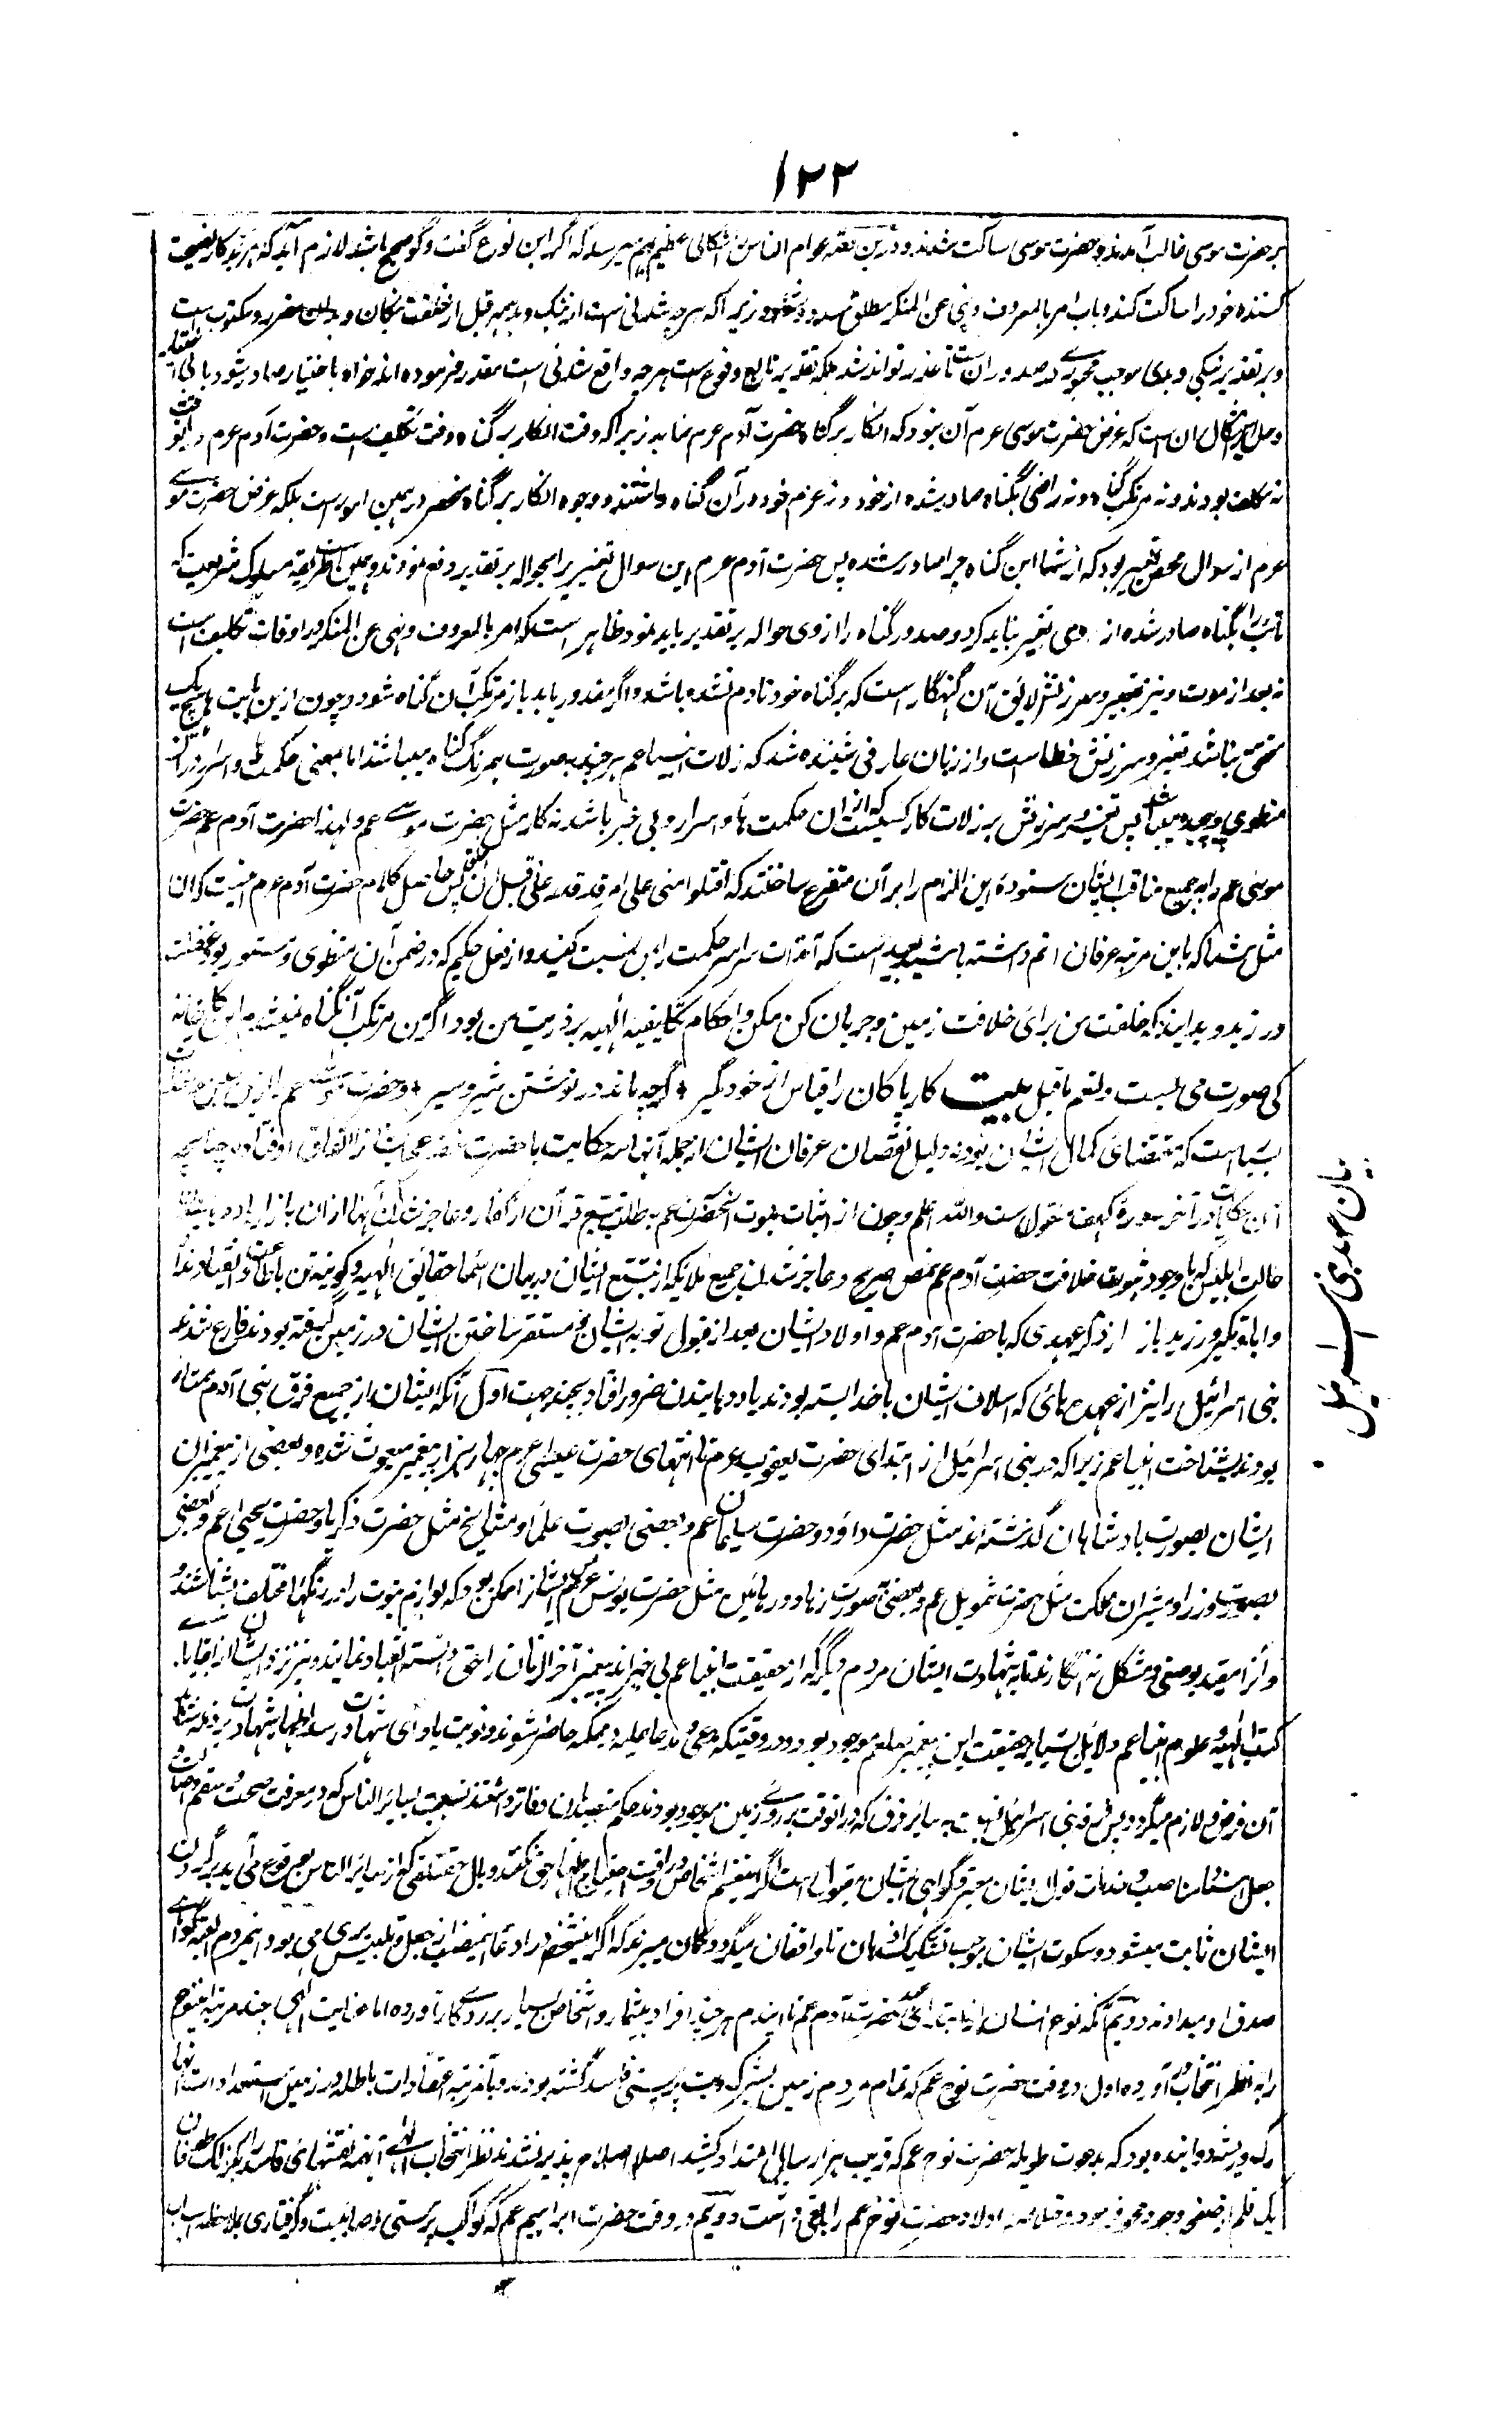 ۱۲۲
بر حضرت موسی غالب آمدند و حضرت موسی ساکت شدند و درین قصه عوام الناس را اشکالی عظیم بهم میرسد که اگر این نوع گفت و گو صحیح باشد لازم آید که هر بدکار نصیحت
کننده خود را ساکت کند و باب امر بالمعروف و نهی عن المنکر مطلق مسدود شود زیرا که هر چه شدنی است از نیک و بد همه قبل از خلقت بندگان مقرر و مکتوب است
و بر تقدیر نیکی و بدی موجب مجبوری در صدور آن نیست تا عذر تواند شد بلکه تقدیر تابع وقوع است هر چه واقع شدنی است مقدر فرموده اند خواه باختیار صادر شود یا بی اختیار
و حل این اشکال آن است که غرض حضرت موسی عرم آن نبود که انکار بر گناه حضرت آدم عرم نماید زیرا که وقت انکار بر گناه وقت تکلیف است و حضرت آدم عرم درآنوقت
نه مکلف بودند و نه مرتکب گناه و نه راضی بگناه صادر شده از خود و نه عزم خود در آن گناه داشتند و وجوه انکار بر گناه منحصر در همین امور است بلکه غرض حضرت موسی
عرم از سوال محض تعییر بود که از شما این گناه چرا صادر شده پس حضرت آدم عرم این سوال تعییر را بحواله بر تقدیر دفع نمودند و همین است طریقه مسلوک شریعت که
تائب را بگناه صادر شده از وی تعییر نباید کرد و صدور گناه را از وی حواله بر تقدیر باید نمود ظاهر است که امر بالمعروف و نهی عن المنکر در اوقات تکلیف است
نه بعد از موت و نیز تعییر و سرزنش لائق آن گنهگار است که بر گناه خود نادم نشده باشد و اگر مقدور یابد باز مرتکب آن گناه شود و چون ازین بابت هیچ یک
متحقق نباشد تعییر و سرزنش خطاست و از زبان عارفی شنیده شد که زلات انبیا عم هر چند بصورت همرنگ گناه میباشند اما بمعنی حکمت ها و اسرار در آن
منطوی و پیچیده میباشد پس تعییر و سرزنش بر زلات کار کسیست که از آن حکمت ها و اسرار وی بی خبر باشد نه کار مثل حضرت موسی عم و لهذا حضرت آدم عم حضرت
موسی عم را به جمیع مناقب ایشان ستوده این الزام را بر آن متفرع ساختند که افتلومنی علی امر قد قدر علی قبل ان اخلق پس حاصل کلام حضرت آدم عرم اینست که از
مثل شما که باین مرتبه عرفان اتم داشته باشید بعید است که آن زلت سراسر حکمت را بمن نسبت کنید و از فعل حکیم که در ضمن آن منطوی و مستور بود غفلت
ورزید و بدانید که خلقت من برای خلافت زمین و جریان کن مکن و احکام تکلیفیه الهیه بر ذریت من بود اگر من مرتکب آن گناه نمیشدم این کارخانه
کی صورت می بست و لنعم ما قیل بیت کار پاکان را قیاس از خود مگیر + گرچه ماند در نوشتن شیر و شیر + و حضرت موسی عم را ازین جنس
بسیار است که مقتضای کمال ایشان بود نه دلیل نقصان عرفان ایشان از جمله آنها سه حکایت با حضرت خضر عم ایشانرا اتفاق افتاده چنانچه
آن حکایات در آخر سوره کهف منقول است والله اعلم و چون از اثبات نبوت آنحضرت عم بطلب تتبع قرآن از کفار و عاجز شدن آنها ازان باز
حالت ابلیس که باوجود ثبوت خلافت حضرت آدم عم بنص صریح و عاجز شدن جمیع ملائکه از تتبع ایشان در بیان اسما حقائق الهیه و کونیه تن باطاعت و انقیاد نداد
و ابا و تکبر ورزید باز از ذکر عهدی که با حضرت آدم عم و اولاد ایشان بعد از قبول توبه ایشان و مستقر ساختن ایشان در زمین گرفته بودند فارغ شدند
بنی اسرائیل را نیز از عهدهائی که اسلاف ایشان با خدا بسته بودند یاد دهانیدن ضرور افتاد بچند جهت اول آنکه ایشان از جمیع فرق بنی آدم ممتاز
بودند بشناخت انبیا عم زیرا که در بنی اسرائیل از ابتدای حضرت یعقوب عرم تا انتهای حضرت عیسی عرم چهار هزار پیغمبر مبعوث شده و بعضی از پیغمبران
ایشان بصورت بادشاهان گذشته اند مثل حضرت داؤد و حضرت سلیمان عم و بعضی بصورت علما و مشائخ مثل حضرت زکریا و حضرت یحیی عم و بعضی
بصورت وزرا و مشیران مملکت مثل حضرت شمویل عم و بعضی بصورت زهاد و رهابین مثل حضرت یونس عم پس ایشانرا ممکن بود که لوازم نبوت را در رنگهای مختلف بشناسند
و آنرا مقید بوضعی و شکلی نه انگارند تا بشهادت ایشان مردم دیگر که از حقیقت انبیا عم بی خبراند پیغمبر آخر الزمان را حق دانسته انقیاد نمایند و نیز نزد ایشان از بقایای
کتب الهیه و علوم انبیا عم دلائل بسیار بر حقیقت این پیغمبر صلعم موجود بود و در وقتیکه مدعی و مدعا علیه در محکمه حاضر شوند و نوبت باد ای شهادت رسد اظهار شهادت بر ذمه شاهد
آن فرض و لازم میگردد پس فرقه بنی اسرائیل نسبت به سائر فرق که در آنوقت بر روی زمین موجود بودند حکم منصبداران دفاتر داشتند نسبت بسائر الناس که در معرفت صحت و سقم
جعل اسناد مناصب و خدمات قول ایشان معتبر و گواهی ایشان مقبول است اگر اینقسم اشخاص در وقت احتیاج اظهار حق نکنند وبال حق تلفی که از سائر الناس بوقوع می آید بر گردن
ایشان ثابت میشود و سکوت ایشان موجب تشکیک اذهان ناواقفان میگردد و گمان میبرند که اگر این شخص در ادعای این منصب از جعل و تلبیس بری می بود اینمردم البته گواهی
صدق او میدادند دویم آنکه نوع انسان از ابتدای عهد حضرت آدم عم تا ایندم هر چند افراد بیشمار و اشخاص بسیار بر روی کار آورده اما عنایت الهی چند مرتبه این نوع
را به نظر انتخاب در آورده اول در وقت حضرت نوح عم که تمام مردم زمین بشرک و بت پرستی فاسد گشته بودند و باندرتبه اعتقادات باطله در زمین استعدادات آنها
رگ و ریشه دوانیده بود که بدعوت طویله حضرت نوح عم که قریب هزار سال امتداد کشید اصلا اصلاح پذیر نشدند نظر انتخاب الهی آنهمه نقشهای فاسد را بیک طوفان
یک قلم از صفحه وجود محو فرمود و فقط اولاد حضرت نوح عم را باقی داشت دویم در وقت حضرت ابراهیم عم که کواکب پرستی و صابئیت و گرفتاری بملاحظه اسباب
بیان عهد بنی اسرائیل